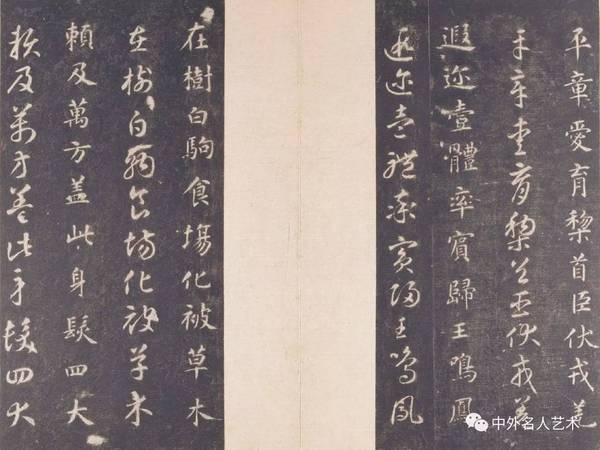 平章愛育黎首臣伏戎羌
平章愛育黎首臣伏戎羌
遐迩壹體率賓歸王鳴鳳
遐迩壹體率賓歸王鳴鳳
在樹白駒食場化被草木
在樹白駒食場化被草木
賴及萬方蓋此身髮四大
賴及萬方蓋此身髮四大
中外名人艺术